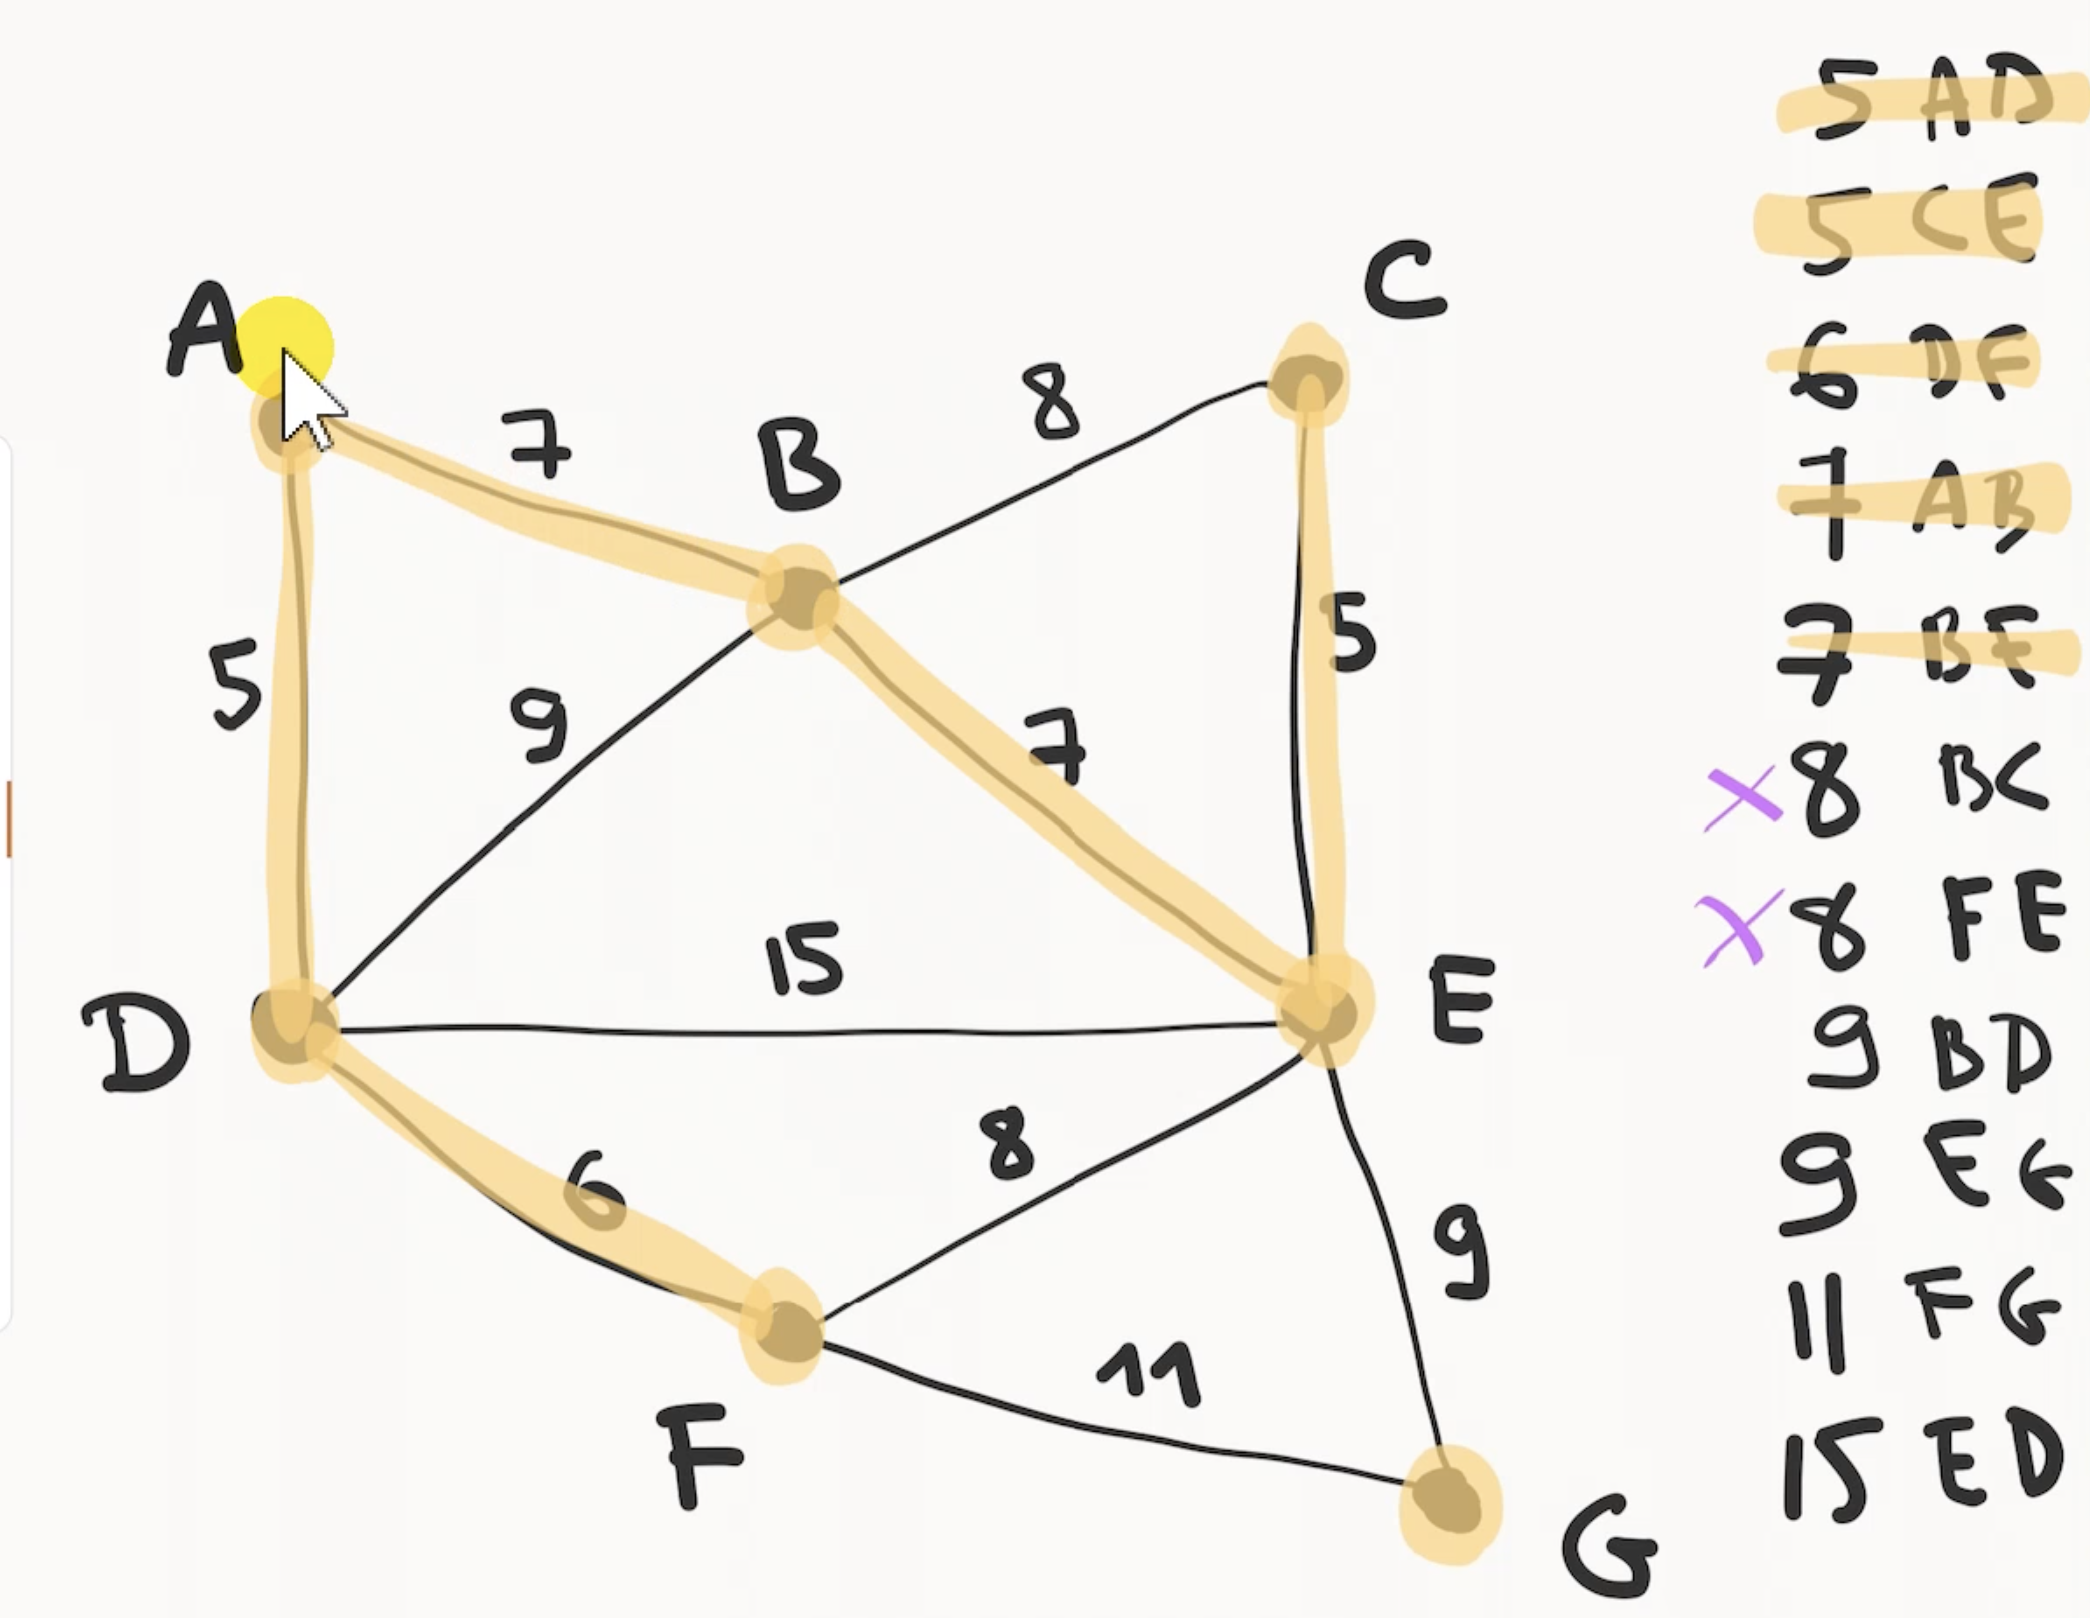 A
7
B
8
C
5
9
7
5
D
15
E
6
8
9
F
11
G
5 AD
5 CE
6 DF
7 AB
7 BE
8 BC
8 FE
9 BD
9 EG
11 FG
15 ED